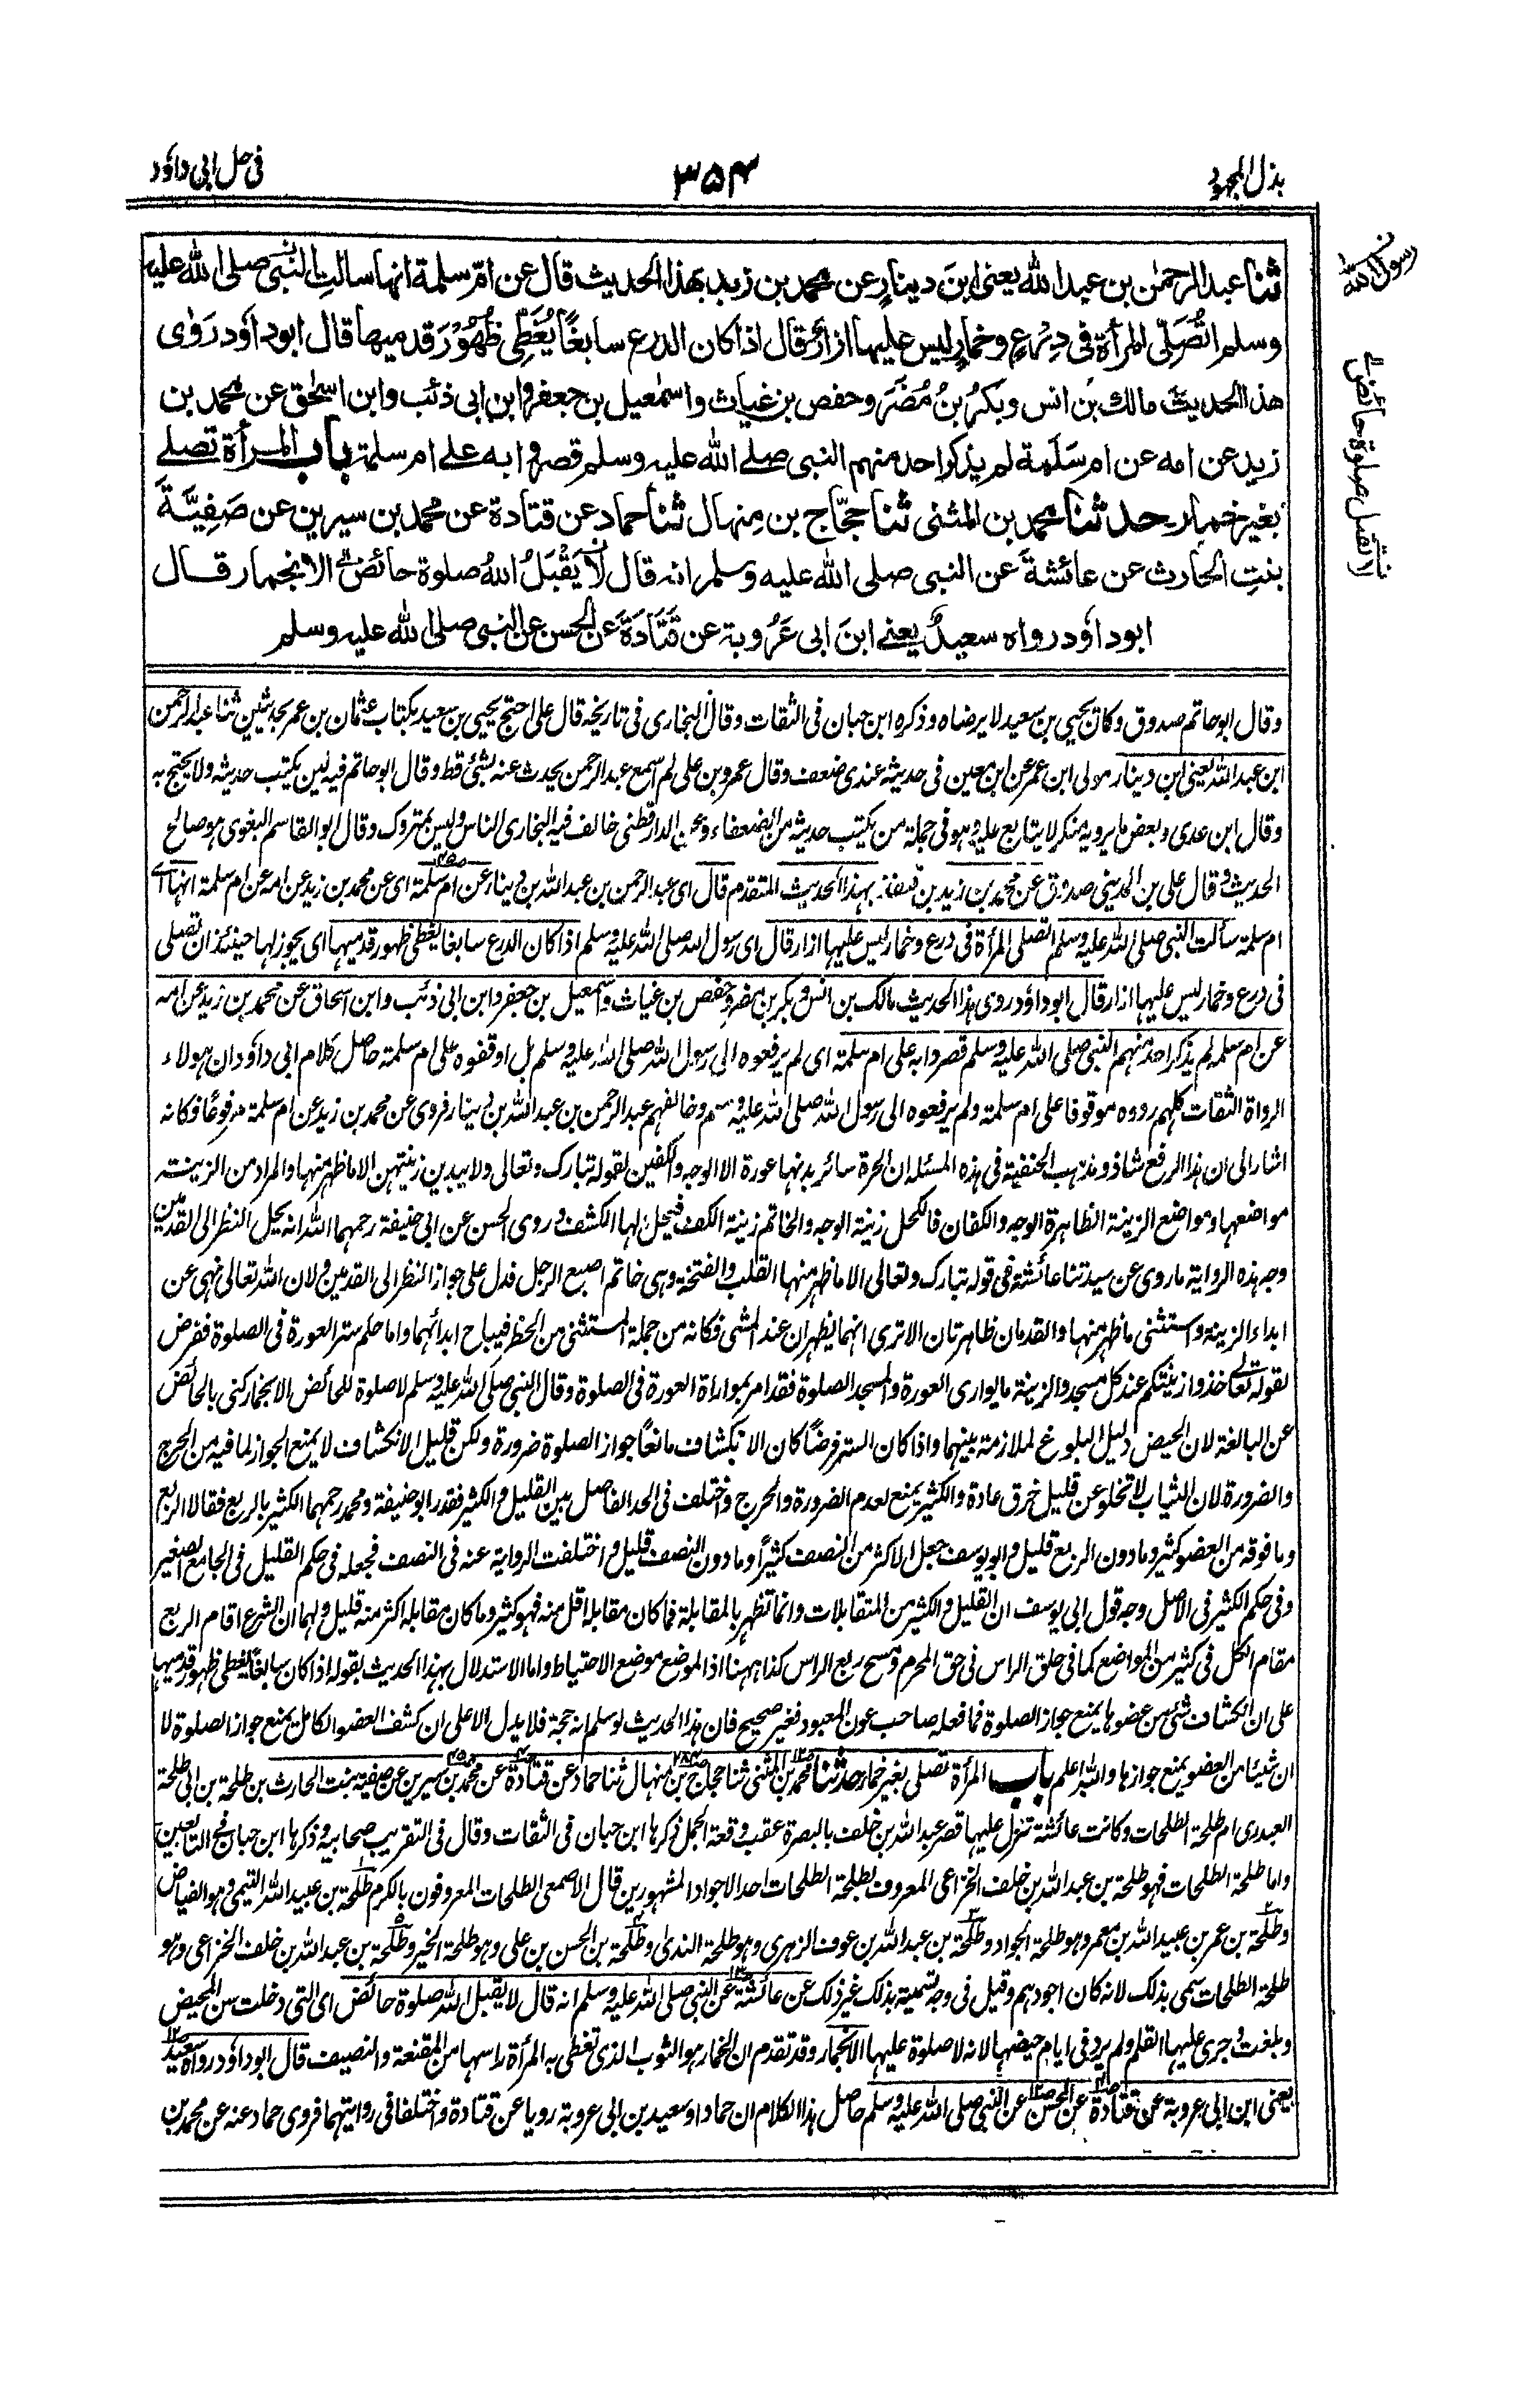 بذل المجهود
٣٥٤
فی حل ابی داؤد
ثنا عبد الرحمٰن بن عبد الله يعنی ابنَ دينارٍ عن محمد بن زيد بهذا الحديث قال عن امّ سلمة انها سالتِ النبی صلی الله عليه
وسلم اتُصَلّی المرأة فی دِرْعٍ وخمارٍ ليس عليها ازارٌ قال اذا كان الدرع سابغًا يُغَطِّی ظُهُوْرَ قدميها قال ابوداؤد رَوٰی
هذا الحديثَ مالك بن انس وبَكْرُ بنُ مُضَرَ وحفص بن غياث واسمٰعيل بن جعفر وابن ابی ذئب وابن اسحٰق عن محمد بن
زيد عن امه عن ام سَلَمة لم يذكر احد منهم النبی صلے الله عليه وسلم قصروا به علے ام سلمة باب المرأة تصلے
بغير خمار حدثنا محمد بن المثنی ثنا حجّاج بن مِنهال ثنا حماد عن قتادة عن محمد بن سيرين عن صَفِيَّةَ
بنتِ الحارث عن عائشةَ عن النبی صلی الله عليه وسلم انه قال لا يَقْبَلُ اللهُ صلوة حائض الا بخمار قال
ابوداؤد رواه سعيدٌ يعنے ابنَ ابی عَرُوبة عن قَتَادَةَ عن الحسن عن النبی صلی الله عليه وسلم
رسول الله
لا تقبل صلوة حائض
وقال ابوحاتم صدوق وكان يحيی بن سعيد لا يرضاه وذكره ابن حبان فی الثقات وقال البخاری فی تاريخه قال علی احتج يحيی بن سعيد بكتاب عثمان بن عمر بحديثين ثنا عبد الرحمن
ابن عبد الله يعنی ابن دينار مولی ابن عمر عن ابن معين فی حديثه عندی ضعف وقال عمرو بن علی لم اسمع عبد الرحمن يحدث عنه بشئ قط وقال ابوحاتم فيه لين يكتب حديثه ولا يحتج به
وقال ابن عدی وبعض ما يرويه منكر لا يتابع عليه وهو فی جملة من يكتب حديثه من الضعفاء وعن الدارقطنی خالف فيه البخاری الناس وليس بمتروك وقال ابو القاسم البغوی هو صالح
الحديث وقال علی بن المدينی صدوق عن محمد بن زيد بن قنفذ بهذا الحديث المتقدم قال ای عبد الرحمن بن عبد الله بن دينار عن ام سلمة ای عن محمد بن زيد عن امه عن ام سلمة انها ای
ام سلمة سألت النبی صلی الله عليه وسلم اتصلی المرأة فی درع وخمار ليس عليها ازار قال ای رسول الله صلی الله عليه وسلم اذا كان الدرع سابغا يغطی ظهور قدميها ای يجوز لها حينئذ ان تصلی
فی درع وخمار ليس عليها ازار قال ابوداؤد روی هذا الحديث مالك بن انس وبكر بن مضر وحفص بن غياث واسمعيل بن جعفر وابن ابی ذئب وابن اسحاق عن محمد بن زيد عن امه
عن ام سلمه لم يذكر احد منهم النبی صلی الله عليه وسلم قصروا به علی ام سلمة ای لم يرفعوه الی رسول الله صلی الله عليه وسلم بل اوقفوه علی ام سلمة حاصل كلام ابی داؤد ان هولاء
الرواة الثقات كلهم رووه موقوفا علی ام سلمة ولم يرفعوه الی رسول الله صلی الله عليه وسلم وخالفهم عبد الرحمن بن عبد الله بن دينار فروی عن محمد بن زيد عن ام سلمة مرفوعًا فكانه
اشار الی ان هذا الرفع شاذ ومذهب الحنفية فی هذه المسئلة ان الحرة سائر بدنها عورة الا الوجه والكفين لقوله تبارك وتعالی ولا يبدين زينتهن الا ما ظهر منها والمراد من الزينة
مواضعها ومواضع الزينة الظاهرة الوجه والكفان فالكحل زينة الوجه والخاتم زينة الكف فيحل لها الكشف وروی الحسن عن ابی حنيفة رحمهما الله انه يحل النظر الی القدمين
وجه هذه الرواية ما روی عن سيدتنا عائشة فی قوله تبارك وتعالی الا ما ظهر منها القلب والفتخة وهی خاتم اصبع الرجل فدل علی جواز النظر الی القدمين ولان الله تعالی نهی عن
ابداء الزينة واستثنی ما ظهر منها والقدمان ظاهرتان الا تری انهما يظهران عند المشی فكانه من جملة المستثنی من الحظر فيباح ابدائهما واما حكم ستر العورة فی الصلوة ففرض
لقوله تعالے خذوا زينتكم عند كل مسجد والزينة ما يواری العورة والمسجد الصلوة فقد امر بمواراة العورة فی الصلوة وقال النبی صلی الله عليه وسلم لا صلوة للحائض الا بخمار كنی بالحائض
عن البالغة لان الحيض دليل البلوغ لملازمة بينهما واذا كان الستر فرضًا كان الانكشاف مانعًا جواز الصلوة ضرورة ولكن قليل الانكشاف لا يمنع الجواز لما فيه من الحرج
والضرورة لان الثياب لا تخلو عن قليل خرق عادة والكثير يمنع لعدم الضرورة والحرج واختلف فی الحد الفاصل بين القليل والكثير فقدر ابوحنيفة ومحمد رحمهما الكثير بالربع فقالا الربع
وما فوقه من العضو كثير وما دون الربع قليل وابو يوسف جعل الاكثر من النصف كثيرًا وما دون النصف قليل واختلفت الرواية عنه فی النصف فجعله فی حكم القليل فی الجامع الصغير
وفی حكم الكثير فی الاصل وجه قول ابی يوسف ان القليل والكثير من المتقابلات وانما تظهر بالمقابلة فما كان مقابله اقل منه فهو كثير وما كان مقابله اكثر منه قليل ولهما ان الشرع اقام الربع
مقام الكل فی كثير من المواضع كما فی حلق الراس فی حق المحرم ومسح ربع الراس كذا ههنا اذ الموضع موضع الاحتياط واما الاستدلال بهذا الحديث بقوله اذا كان سابغًا يغطی ظهور قدميها
علی ان انكشاف شئ من عضوها يمنع جواز الصلوة فما فعله صاحب عون المعبود فغير صحيح فان هذا الحديث لو سلم انه حجة فلا يدل الا علی ان كشف العضو الكامل يمنع جواز الصلوة لا
ان شيئا من العضو يمنع جوازها والله اعلم باب المرأة تصلی بغير خمار حدثنا محمد بن المثنی ثنا حجاج بن منهال ثنا حماد عن قتادة عن محمد بن سيرين عن صفية بنت الحارث بن طلحة بن ابی طلحة
العبدری ام طلحة الطلحات وكانت عائشة تنزل عليها قصر عبد الله بن خلف بالبصرة عقب وقعة الجمل ذكرها ابن حبان فی الثقات وقال فی التقريب صحابية وذكرها ابن حبان فی التابعين
واما طلحة الطلحات فهو طلحة بن عبد الله بن خلف الخزاعی المعروف بطلحة الطلحات احد الاجواد المشهورين قال الاصمعی الطلحات المعروفون بالكرم طلحة بن عبيد الله التيمی وهو الفياض
وطلحة بن عمر بن عبيد الله بن معمر وهو طلحة الجواد وطلحة بن عبد الله بن عوف الزهری وهو طلحة الندیٰ وطلحة بن الحسن بن علی وهو طلحة الخير وطلحة بن عبد الله بن خلف الخزاعی وهو
طلحة الطلحات سمی بذلك لانه كان اجودهم وقيل فی وجه تسمية بذلك غير ذلك عن عائشة عن النبی صلی الله عليه وسلم انه قال لا يقبل الله صلوة حائض ای التی دخلت سن المحيض
وبلغت وجری عليها القلم ولم يرد فی ايام حيضها لانه لا صلوة عليها الا بخمار وقد تقدم ان الخمار هو الثوب الذی تغطی به المرأة راسها من المقنعة والنصيف قال ابوداؤد رواه سعيد
يعنی ابن ابی عروبة عن قتادة عن الحسن عن النبی صلی الله عليه وسلم حاصل هذا الكلام ان حمادا وسعيد بن ابی عروبة رويا عن قتادة واختلفا فی روايتهما فروی حماد عنه عن محمد بن